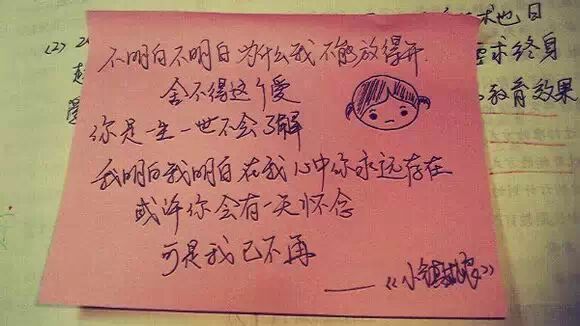 不明白不明白 为什么我不能放得开
舍不得这个爱
你是一生一世不会了解
我明白我明白 在我心中你永远存在
或许你会有一天怀念
可是我已不再
——《小镇姑娘》
也日
求终身
教育效果
(2)